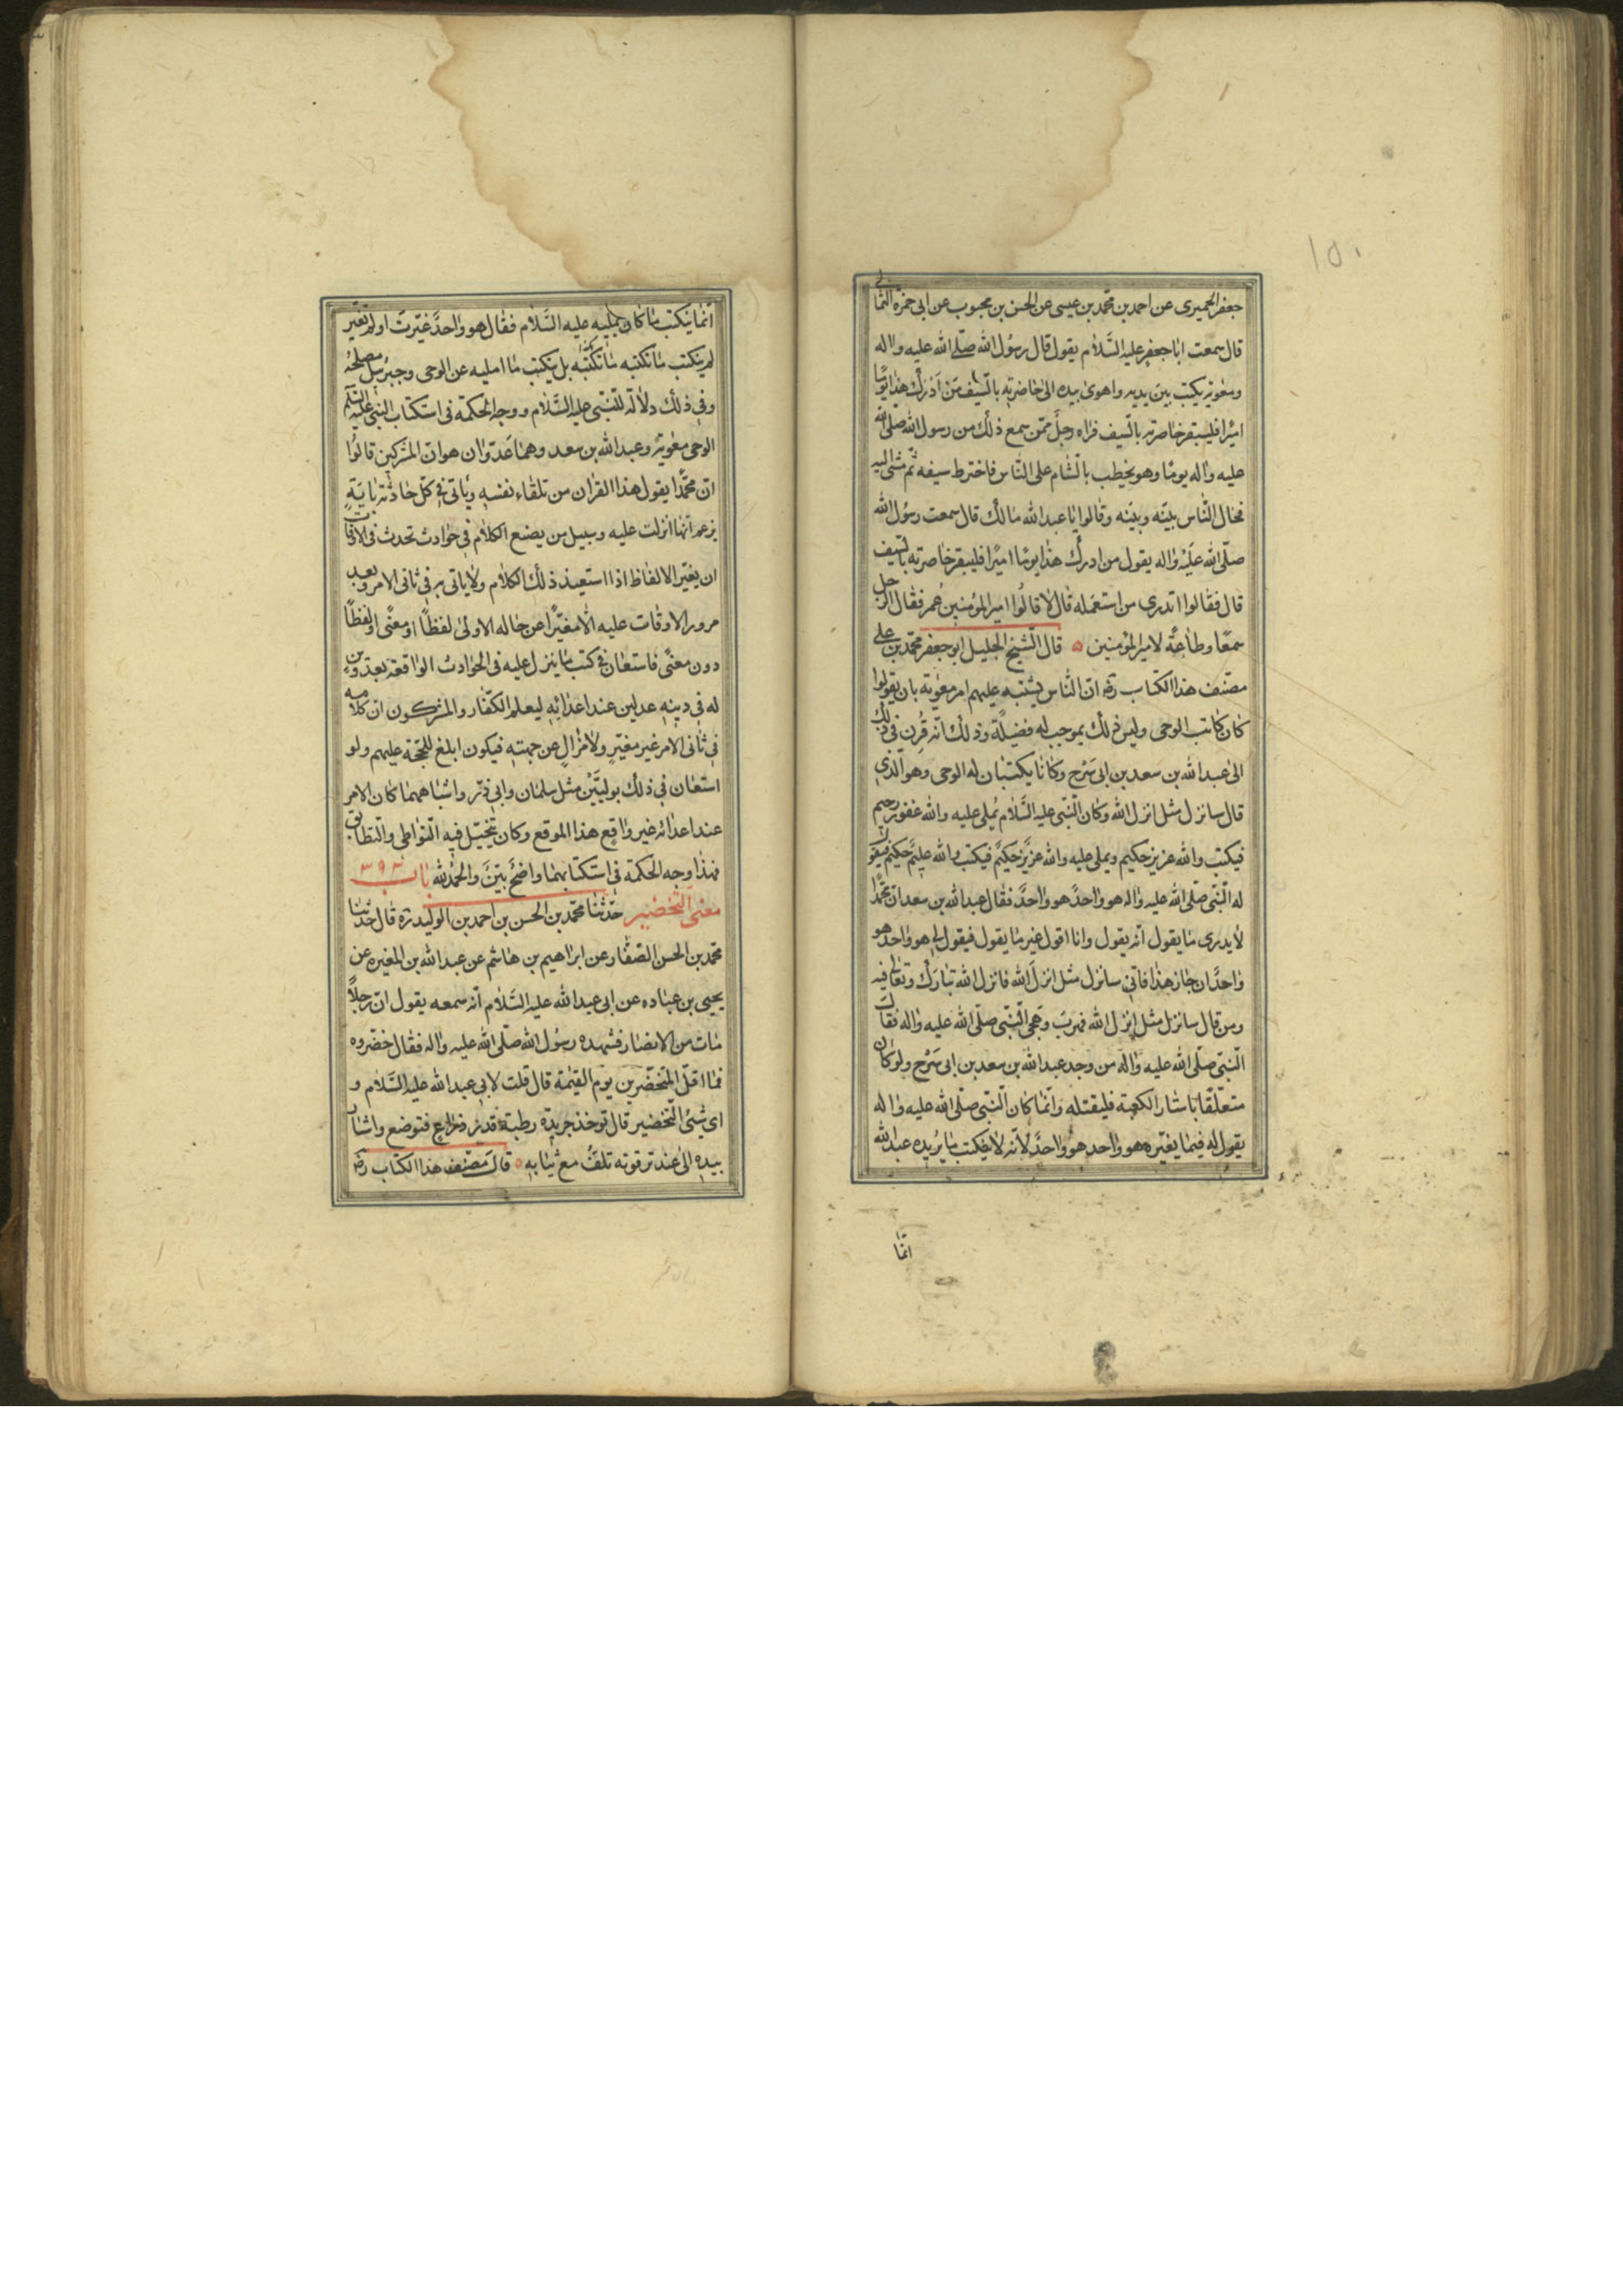 ١٥٠
جعفر الحميرى عن احمد بن محمّد بن عيسى عن الحسن بن محبوب عن ابى حمزة الثمالى
قال سمعت ابا جعفر عليه السّلام يقول قال رسُول الله صلّى الله عليه واله
ومعوية يكتب بين يديه واهوى بيده الى خاصرته بالسّيف مَنْ اَدْرَكَ هذا يومًا
اميرًا فليبقر خاصرته بالسّيف فراه رجلٌ ممّن سمع ذلك من رسول الله صلى الله
عليه واله يومًا وهو يخطب بالشام على النّاس فاخترط سيفه ثم مشى اليه
فحال النّاس بينَه وبينَه وقالوا يا عبد الله مالك قال سمعت رسُول الله
صلّى الله عَليْه واله يقول من ادرك هذا يومًا اميرًا فليبقر خاصرته بالسّيف
قال فقالوا اتدرى من استعمَله قال لا قالُوا امير المؤمنين عُمر فقال الرّجل
سمعًا وطاعةً لامير المؤمنين ه قال الشّيخ الجليل ابو جعفر محمّد بن على
مصنّف هذا الكتاب ره انّ النّاس يشتبه عليهم امر معوية بان يقولوا
كان كاتب الوحى وليس ذلك بموجب له فضيلةً وذلك انّه قُرِن فى ذلك
الى عبد الله بن سعد بن ابى سَرْح وكانا يكتبان له الوحى وهو الّذى
قال سانزل مثل انزل الله وكان النّبى عليه السّلام يُملى عليه والله غفور رحيم
فيكتب والله عزيز حكيم ويملى عليه والله عزيز حكيمٌ فيكتب والله عليمٌ حكيمٌ فيقول
له النّبى صلّى الله عليه واله هو واحدٌ هو واحدٌ فقال عبد الله بن سعد انّ محمّدًا
لا يدرى ما يقول انّه يقول وانا اقول غير ما يقول فيقول لى هو واحد هو
واحدٌ ان جاز هذا فانّى سانزل مثل انزلَ الله فانزل الله تبارك وتعالى فيه
ومن قال سانزل مثل انزل الله فهربَ وهجى النّبى صلّى الله عليه واله فقال
النّبى صلّى الله عليه واله من وجد عبد الله بن سعد بن ابى سَرْح ولو كان
متعلّقًا باستار الكعبة فليقتله وانّما كان النّبى صلّى الله عليه واله
يقول له فيما يغيّره هو واحد هو واحدٌ لانّه لا يكتب ما يُريده عبد الله
انّما
انّما يكتب ما كان يمليه عليه السّلام فقال هو واحدٌ غيّرتَ او لم تغيّر
لم يكتب ما تكتبه ما تكتبه بل يكتب ما امليه عن الوحى وجبرئيل مصلحُه
وفى ذلك دلالة للنّبى عليه السّلام ووجه الحكمة فى استكتاب النّبى عليه السّلم
الوحى معوية وعبد الله بن سعد وهما عَدوّان هو انّ المشركين قالُوا
انّ محمّدًا يقول هذا القران من تلقاء نفسِه وياتى فى كلّ حادثة باية
يزعم انّها انزلت عليه وسبيل من يضع الكلام فى حوادث تحدث فى الاوقات
ان يغيّر الالفاظ اذا استعيد ذلك الكلام ولا ياتى به فى ثانى الامر وبعد
مرور الاوقات عليه الا مغيّرًا عن حاله الاولى لفظًا او معنًى او لفظًا
دون معنًى فاستعان فى كتب ما ينزل عليه فى الحوادث الواقعة بعدوّين
له فى دينِه عدلين عند اعدائِه ليعلم الكفّار والمشركون انّ كلامه
فى ثانى الامر غير مغيّرٍ ولا مزالٍ عن جهتِه فيكون ابلغ للحجّة عليهم ولو
استعان فى ذلك بوليَّيْن مثل سلمان وابى ذرّ واشباههما كان الامر
عند اعدائه غير واقع هذا الموقع وكان يتخيّل فيه التواطى والتطابق
فهذا وجه الحكمة فى استكتابهما واضحٌ بيّن والحمد لله باب ٣٩٣
معنى التخضير حدّثنا محمّد بن الحسن بن احمد بن الوليد ره قال حدّثنا
محمّد بن الحسن الصفّار عن ابراهيم بن هاشم عن عبد الله بن المغيره عن
يحيى بن عباده عن ابى عبد الله عليه السّلام انّه سمعه يقول انّ رجلاً
مات من الانصار فشهده رسُول الله صلّى الله عليه واله فقال خضّروه
فما اقلّ المخضّرين يوم القيمة قال قلت لابى عبد الله عليه السّلام و
اى شئٍ التّخضير قال توخذ جريدة رطبة قدر ذراعٍ فتوضع واشار
بيده الى عند ترقوته تلفّ مع ثيابه ه قال مصنّف هذا الكتاب ره